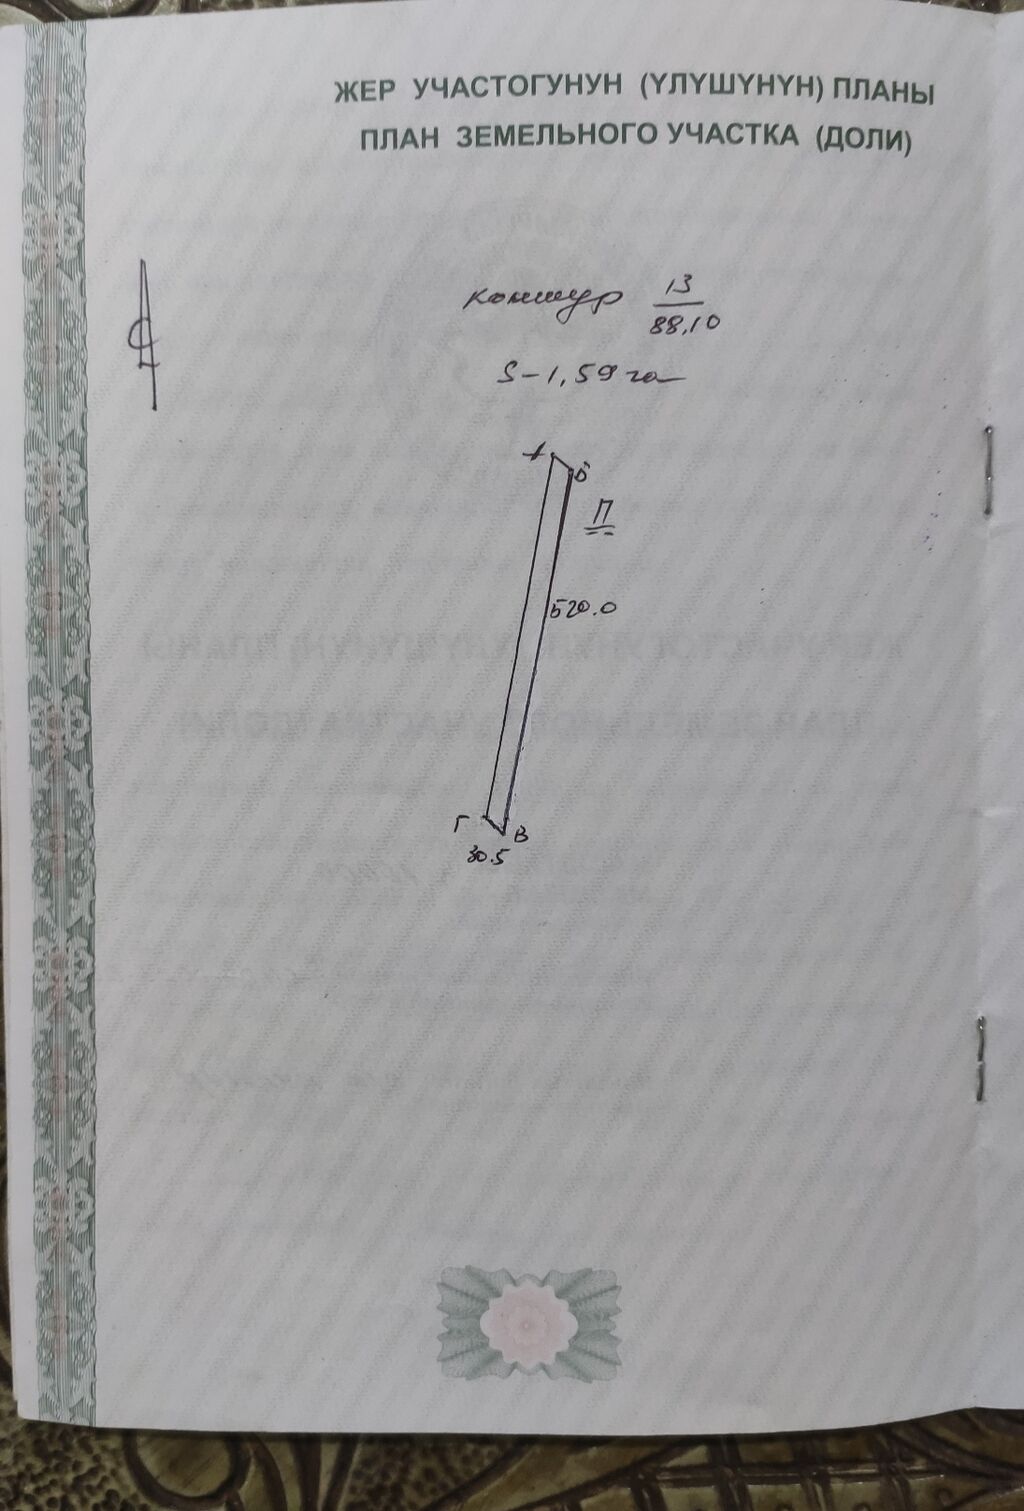 ЖЕР УЧАСТОГУНУН (ҮЛҮШҮНҮН) ПЛАНЫ
ПЛАН ЗЕМЕЛЬНОГО УЧАСТКА (ДОЛИ)
контур 13
88,10
S-1,59 га
А
Б
П
520.0
Г
В
30.5